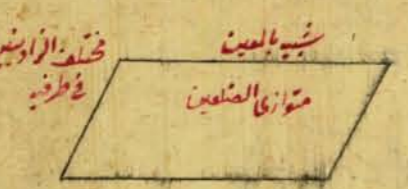 شبيه بالمعين
مختلف الزاويتين
في طرفيه
متوازى الضلعين